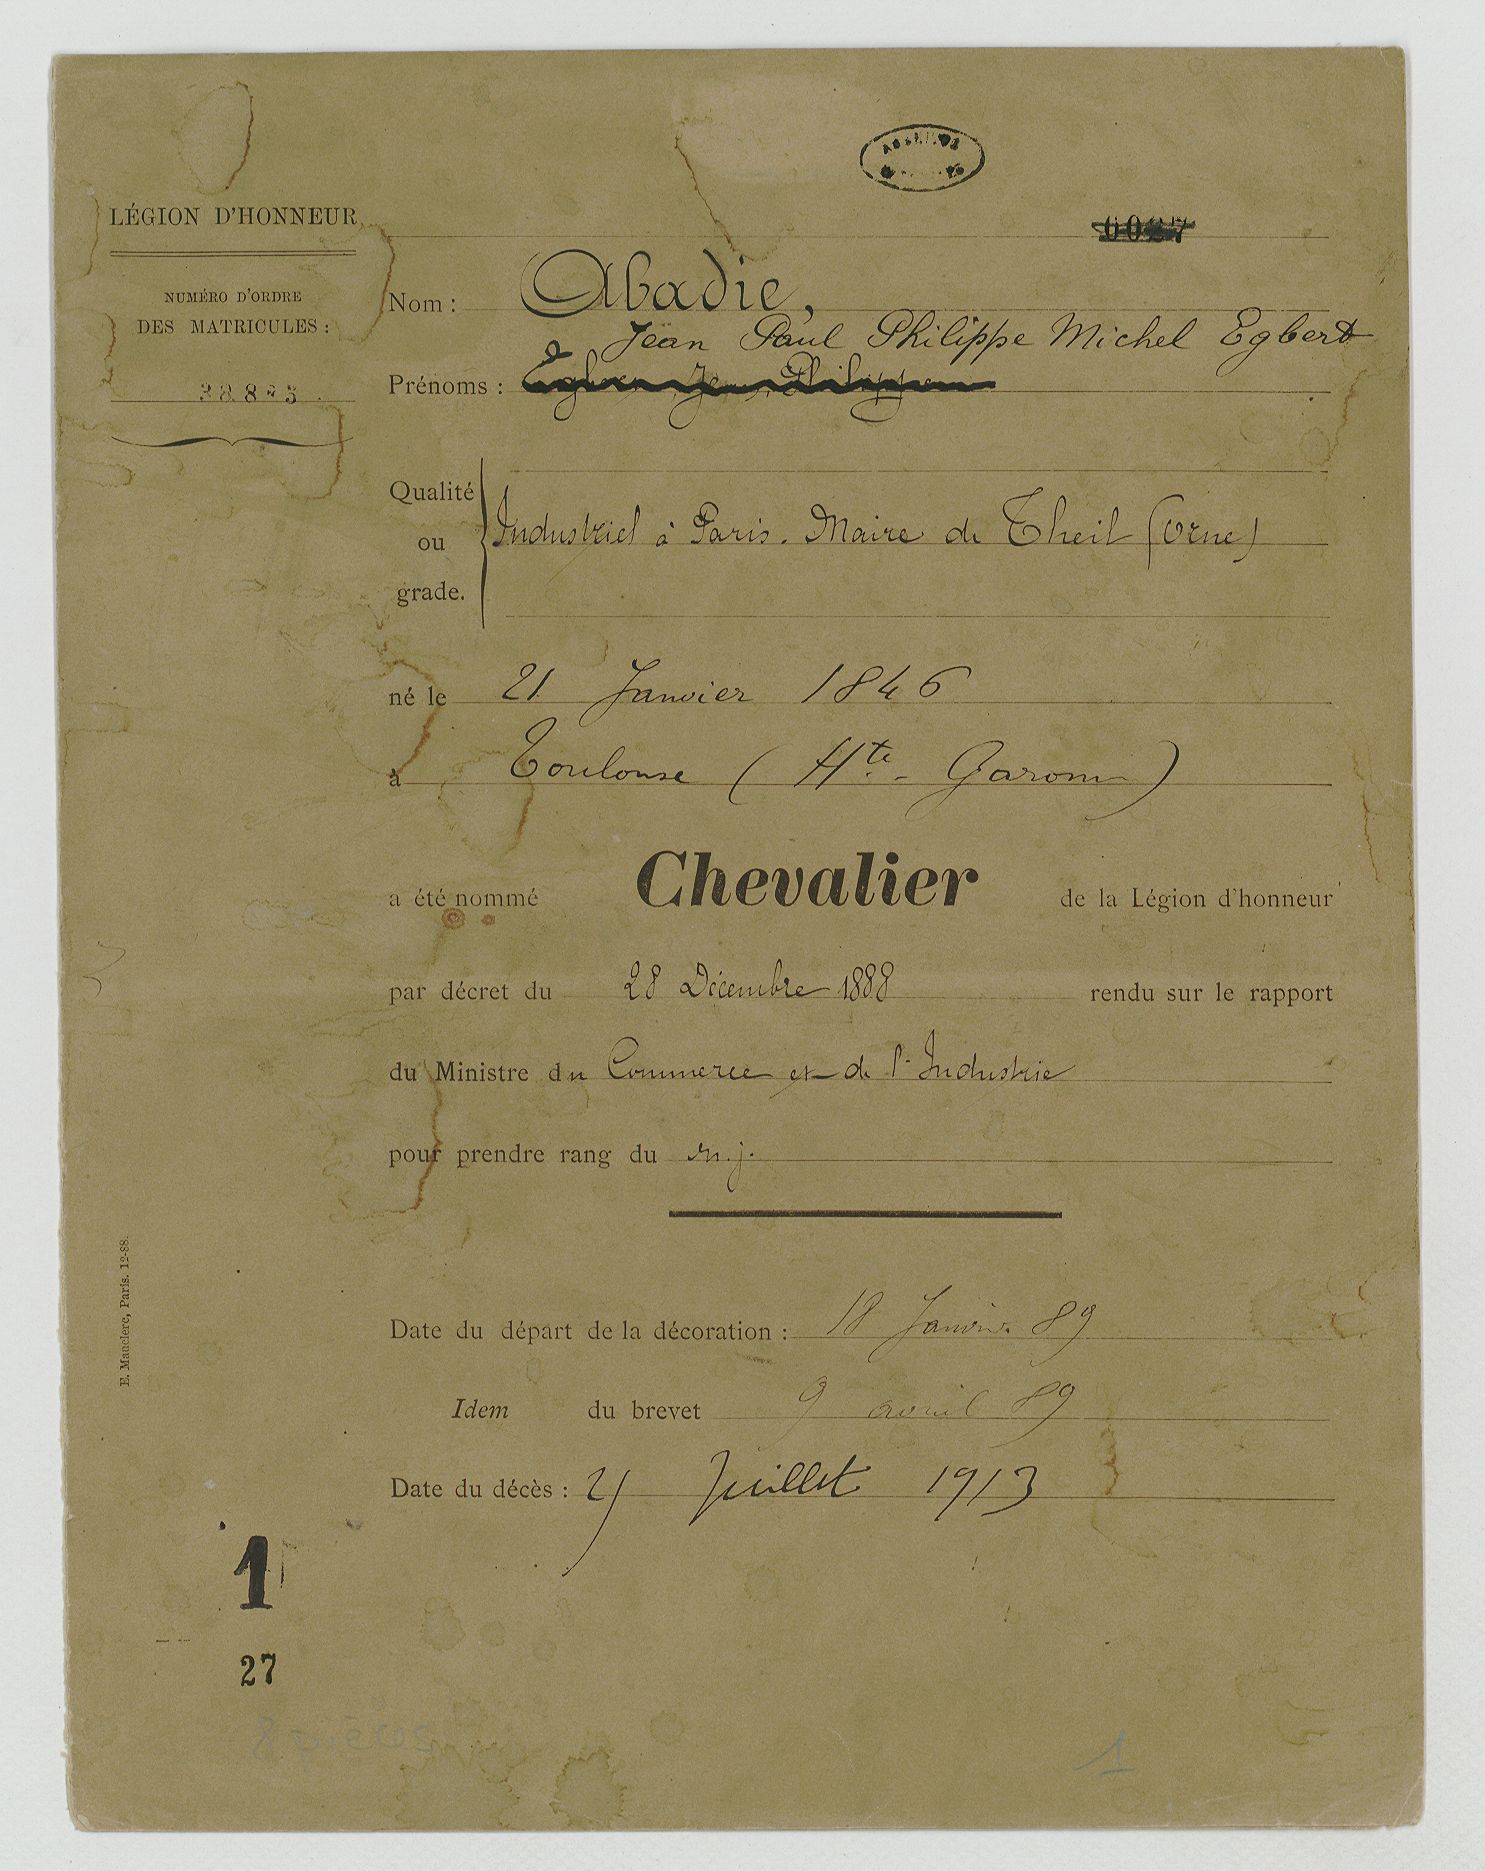 LÉGION D'HONNEUR
NUMÉRO D'ORDRE
DES MATRICULES :
Nom : Abadie,
Jean Paul Philippe Michel Egbert
Prénoms :
Qualité
ou
grade.
Industriel à Paris. Maire de Theil (Orne)
né le 21 Janvier 1846
à Toulouse (Hte. Garonne)
a été nommé Chevalier de la Légion d'honneur
par décret du 28 Décembre 1888 rendu sur le rapport
du Ministre du Commerce et de l'Industrie
pour prendre rang du m. j.
Date du départ de la décoration : 18 Janvier 89
Idem du brevet 9 avril 89
Date du décès : Juillet 1913
E. Mauclerc, Paris. 12-88.
1
27
8 pièces
1